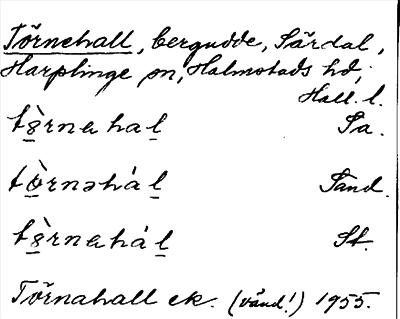 Törnehall, bergudde, Särdal,
Harplinge sn, Halmstads hd,
Hall. l.
tö̀rnahal Sa.
tö̀rnəhál Sand.
tö̀rnahál St.
Törnahall ek. (vänd!) 1955.